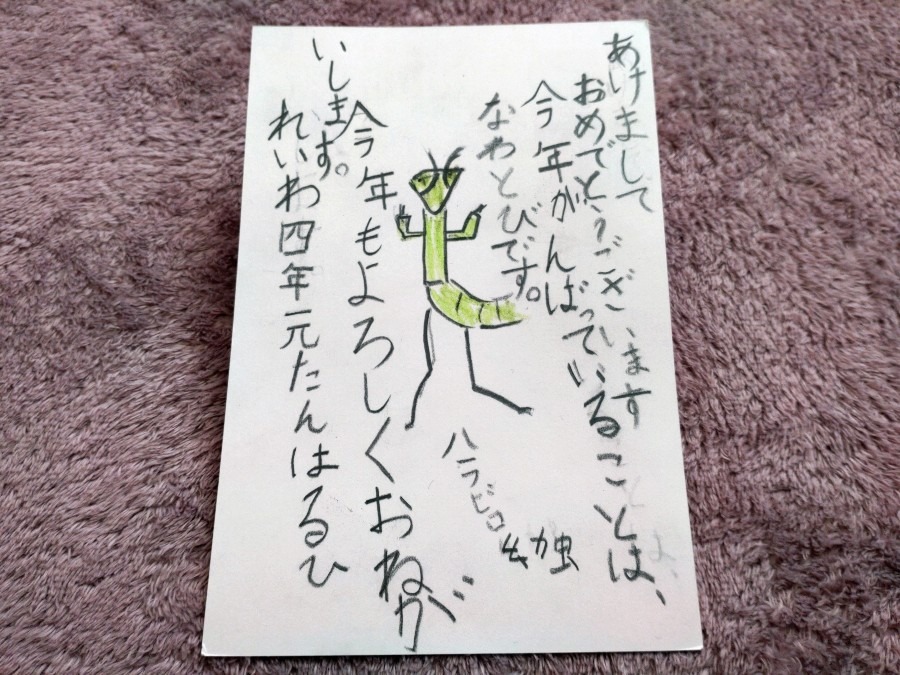 あけまして
おめでとうございます
今年がんばっていることは、
なわとびです。
ハラビロ
幼虫
今年もよろしくおねが
いします。
れいわ四年元たんはるひ